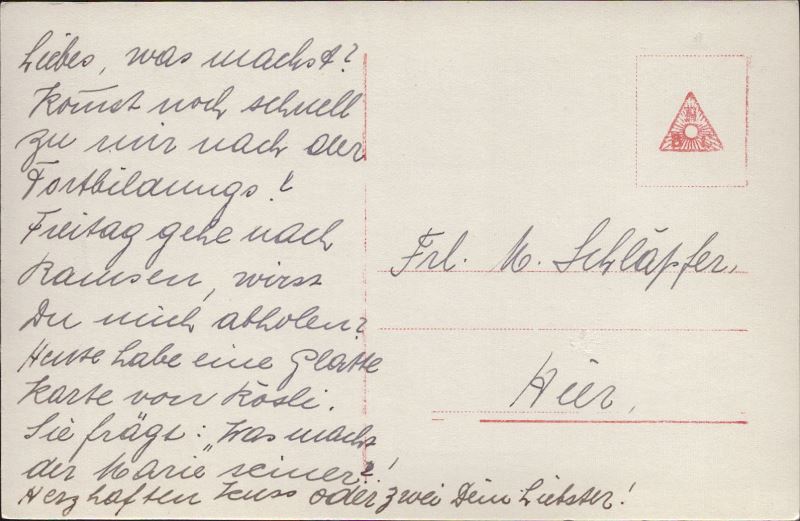 Liebes, was machst?
Kom̄st noch schnell
zu mir nach der
Fortbildungs.?
Freitag gehe nach
Ramsen, wirst
Du mich abholen?
Heute habe eine glatte
Karte von Rösli.
Sie frägt: "Was macht
der Marie seiner?"!
Herzhaften Kuss oder zwei Dein Liebster!
Frl. M. Schläpfer,
Hier,